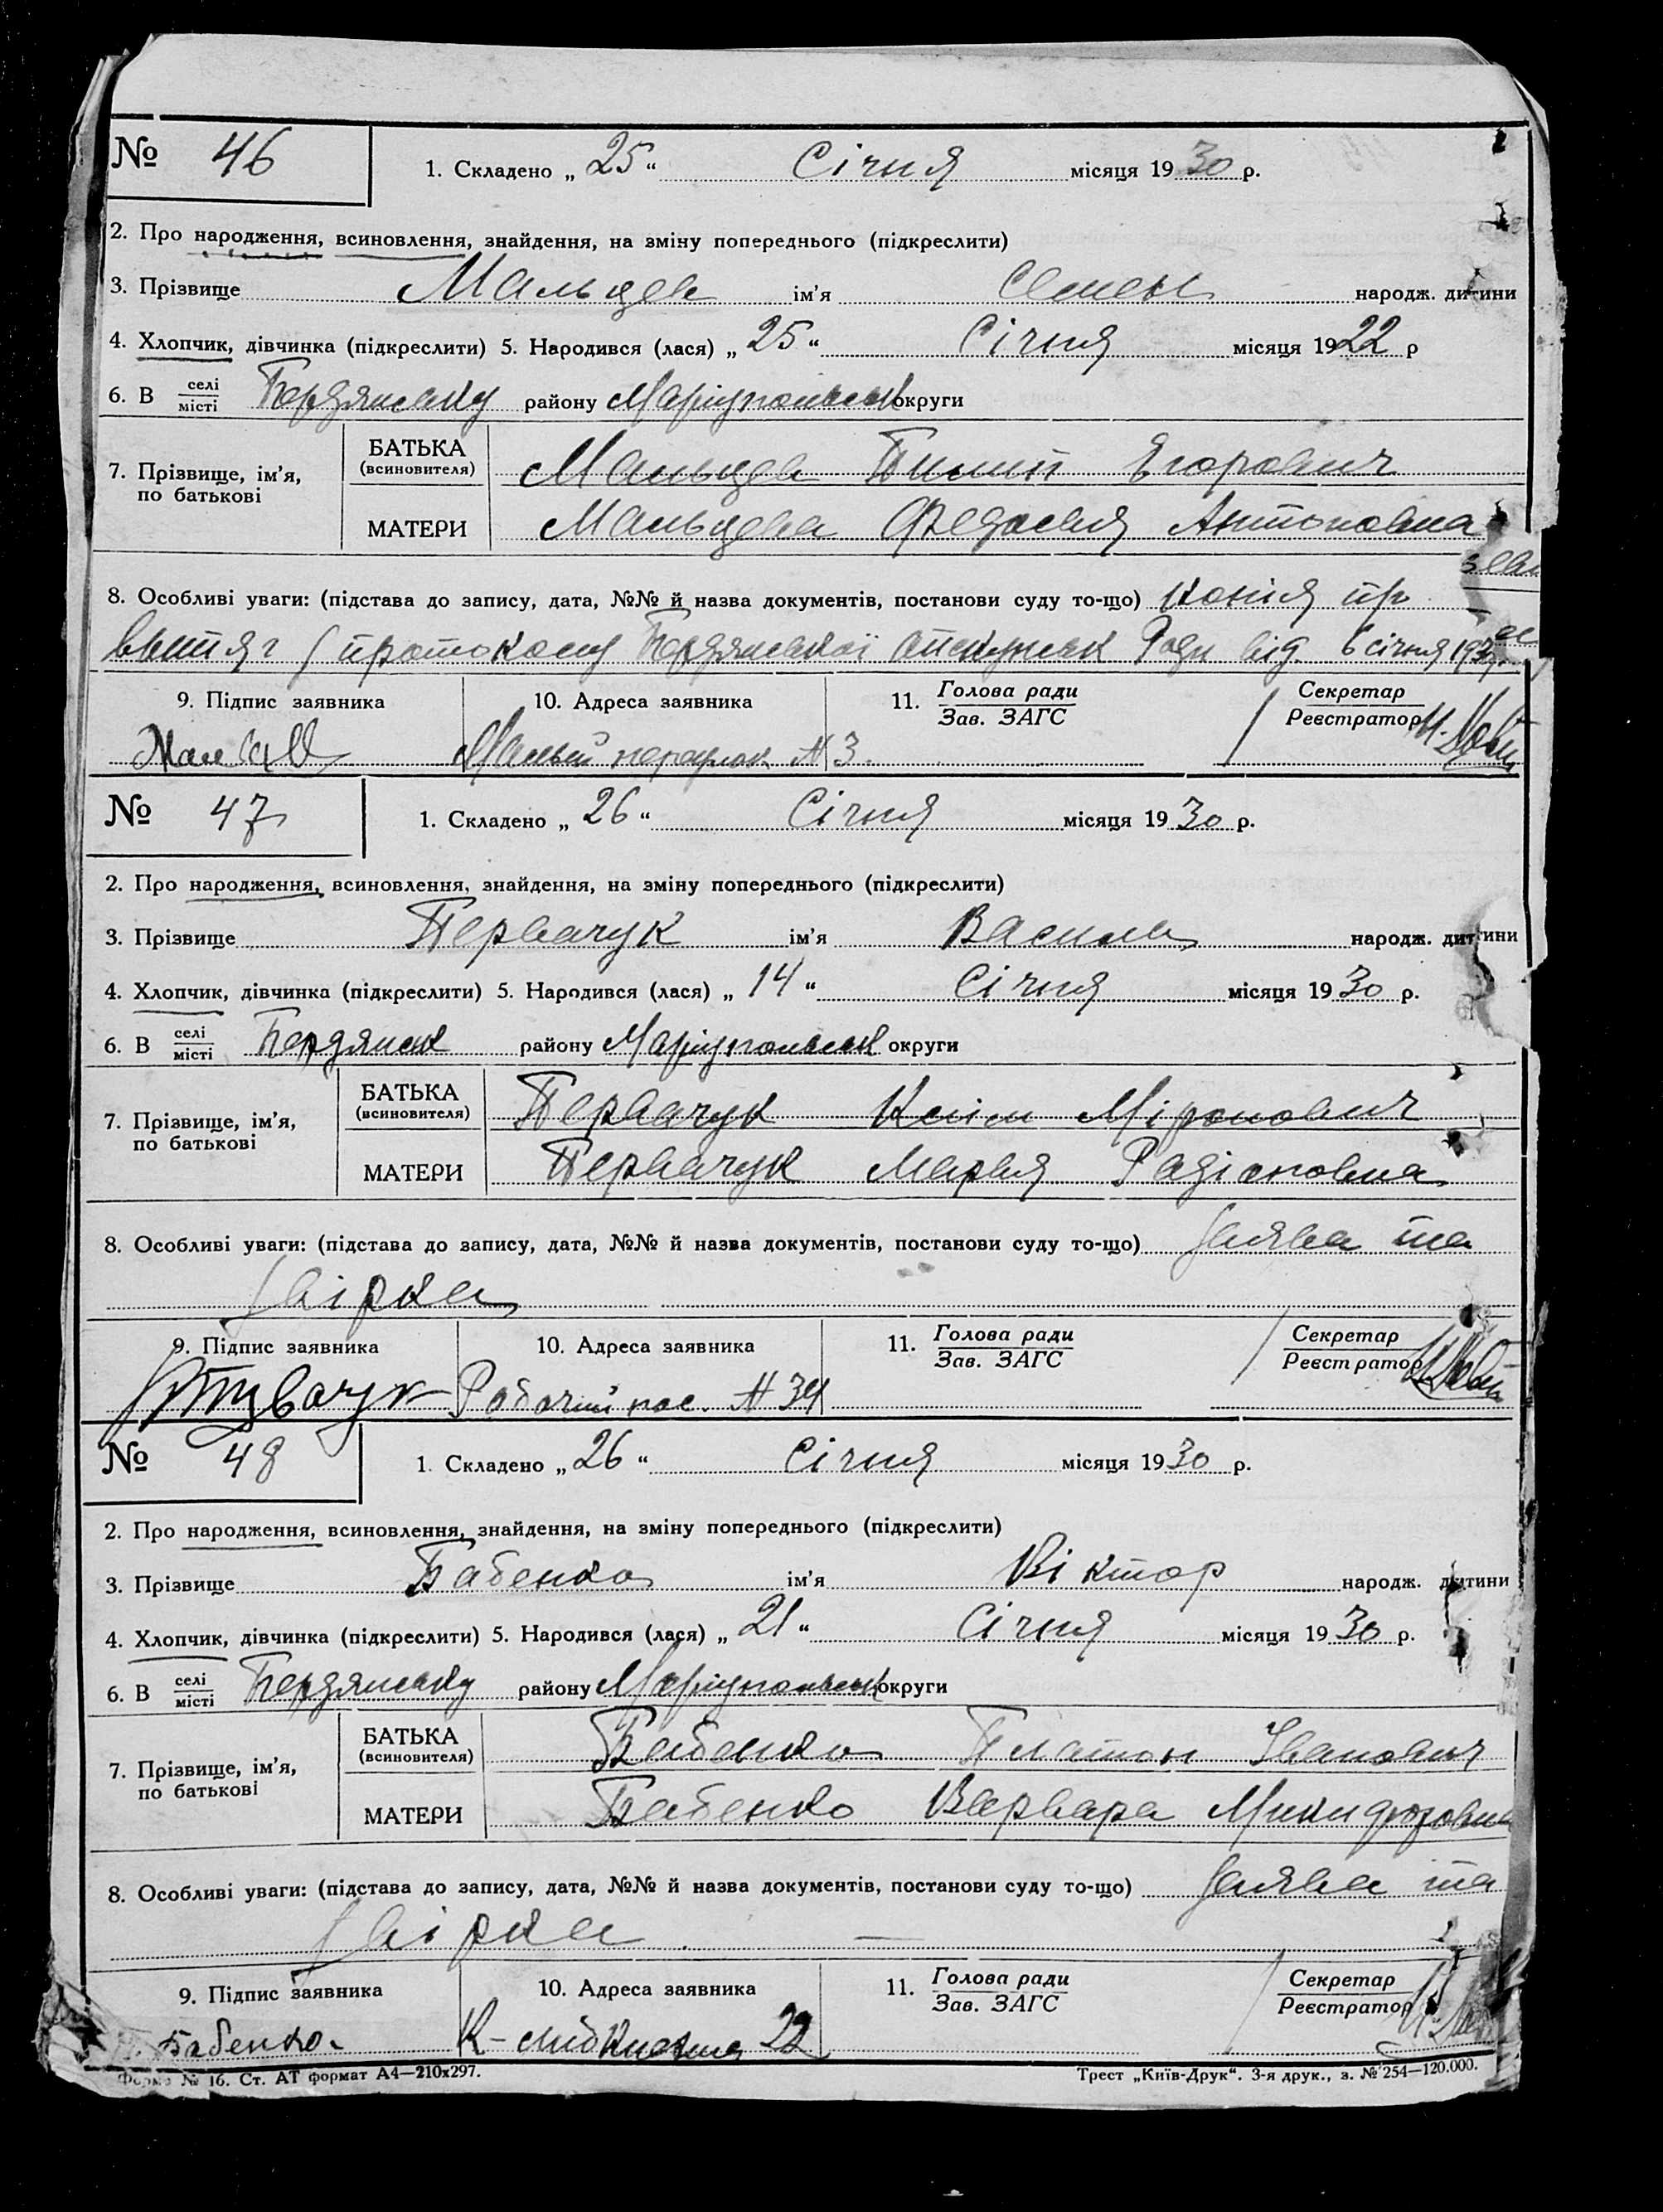 № 46 1. Складено „ 25 “ Січня місяця 19 30 р.
2. Про народження, всиновлення, знайдення, на зміну попереднього (підкреслити)
3. Прізвище Мальцев ім’я Семен народж. дитини
4. Хлопчик, дівчинка (підкреслити) 5. Народився (лася) „ 25 “ Січня місяця 1922 р
6. В селі місті Бердянську району Маріупольськ округи
7. Прізвище, ім’я, по батькові БАТЬКА (всиновителя) Мальцев Пилип Егорович
МАТЕРИ Мальцева Федосия Антоновна
8. Особливі уваги: (підстава до запису, дата, №№ й назва документів, постанови суду то-що) Копія
витяг з протоколу Бердянської опікунськ Ради від. 6 січня 1930
9. Підпис заявника 10. Адреса заявника 11. Голова ради Зав. ЗАГС Секретар Реєстратор
Малый переулок № 3.
№ 47 1. Складено „ 26 “ Січня місяця 19 30 р.
2. Про народження, всиновлення, знайдення, на зміну попереднього (підкреслити)
3. Прізвище Первачук ім’я Василь народж. дитини
4. Хлопчик, дівчинка (підкреслити) 5. Народився (лася) „ 14 “ Січня місяця 19 30 р.
6. В селі місті Бердянськ району Маріупольськ округи
7. Прізвище, ім’я, по батькові БАТЬКА (всиновителя) Первачук Клім Міронович
МАТЕРИ Первачук Мария Радіоновна
8. Особливі уваги: (підстава до запису, дата, №№ й назва документів, постанови суду то-що) Заява та
звірка
9. Підпис заявника 10. Адреса заявника 11. Голова ради Зав. ЗАГС Секретар Реєстратор
Рабочий пос. № 34
№ 48 1. Складено „ 26 “ Січня місяця 19 30 р.
2. Про народження, всиновлення, знайдення, на зміну попереднього (підкреслити)
3. Прізвище Бабенко ім’я Віктор народж. дитини
4. Хлопчик, дівчинка (підкреслити) 5. Народився (лася) „ 21 “ Січня місяця 19 30 р.
6. В селі місті Бердянську району Маріупольськ округи
7. Прізвище, ім’я, по батькові БАТЬКА (всиновителя) Бабенко Платон Іванович
МАТЕРИ Бабенко Варвара Микифоровна
8. Особливі уваги: (підстава до запису, дата, №№ й назва документів, постанови суду то-що) Заява та
звірка
9. Підпис заявника 10. Адреса заявника 11. Голова ради Зав. ЗАГС Секретар Реєстратор
Бабенко К-Либкнехта 22
Форма № 16. Ст. АТ формат А4—210х297. Трест „Київ-Друк“. 3-я друк., з. № 254—120.000.